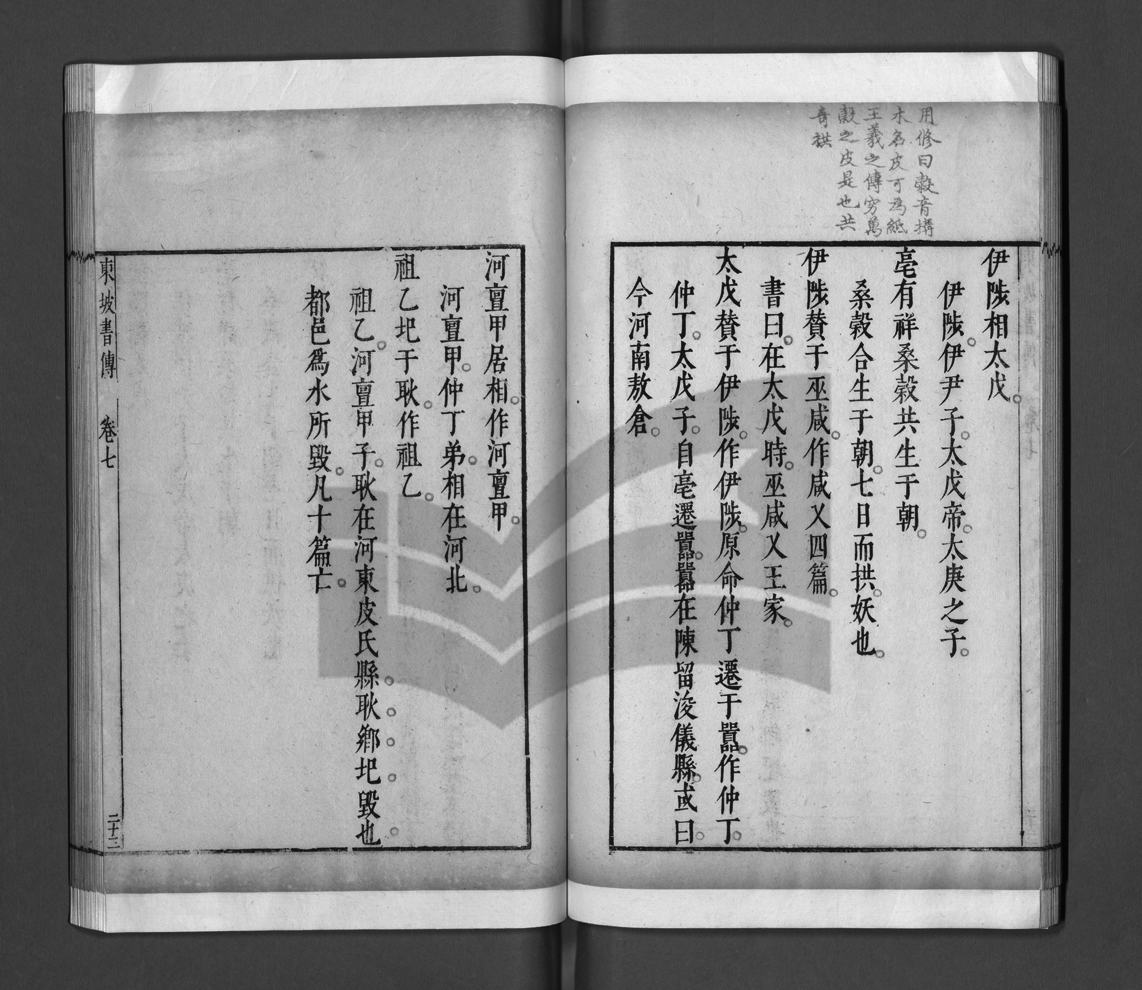 用修曰榖音搆
木名皮可為紙
王羲之傳穷萬
榖之皮是也共
音拱
伊陟相太戊。
伊陟。伊尹子。太戊帝。太庚之子。
亳有祥桑榖共生于朝。
桑榖合生于朝。七日而拱。妖也。
伊陟贊于巫咸。作咸乂四篇。
書曰。在太戊時。巫咸乂王家。
太戊贊于伊陟。作伊陟。原命仲丁遷于囂。作仲丁。
仲丁。太戊子。自亳遷囂。囂在陳留浚儀縣。或曰。
今河南敖倉。
河亶甲居相。作河亶甲。
河亶甲。仲丁弟。相在河北。
祖乙圯于耿。作祖乙。
祖乙。河亶甲子。耿在河東皮氏縣耿鄉。圯毀也。
都邑爲水所毀。凡十篇亡。
東坡書傳 卷七
二十三